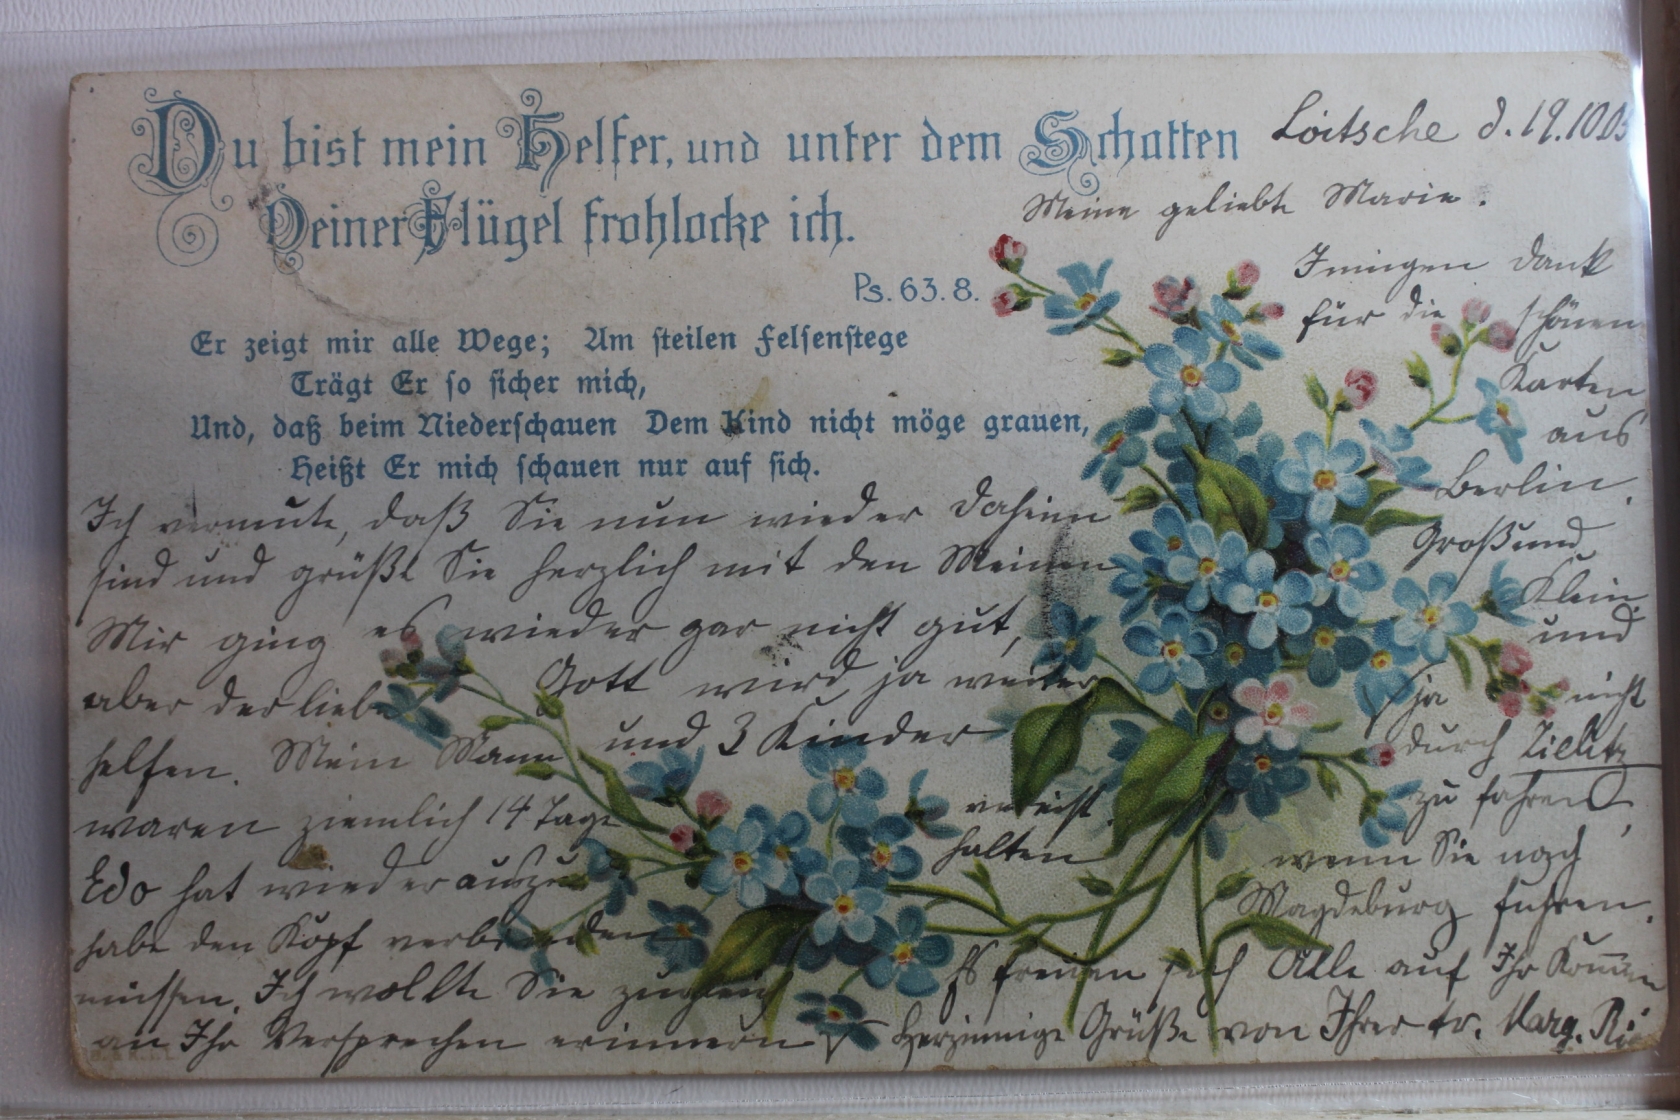 Du bist mein Helfer, und unter dem Schatten
Deiner Flügel frohlocke ich.
Ps. 63. 8.
Er zeigt mir alle Wege; Am steilen Felsenstege
Trägt Er so sicher mich,
Und, daß beim Niederschauen Dem Kind nicht möge grauen,
Heißt Er mich schauen nur auf sich.
Loitsche d. 19.10.05
Meine geliebte Marie.
Innigen Dank
für die schönen
Karten
aus
Berlin.
Ich vermute, daß Sie nun wieder daheim
sind und grüßt Sie herzlich mit den Meinen
Groß und
Klein
Mir ging es wieder gar nicht gut,
und
aber der liebe Gott wird ja weiter
ja nicht
helfen. Mein Mann und 3 Kinder
durch Zielitz
waren ziemlich 14 Tage verreist.
zu fahren,
halten
wenn Sie nach
Edo hat wieder
Magdeburg fuhren.
habe den Kopf verbinden
Es freuen sich Alle auf Ihr Kommen
müssen. Ich wollte Sie zugleich
an Ihr Versprechen erinnern
Herzinnige Grüße von Ihrer tr. Marg.